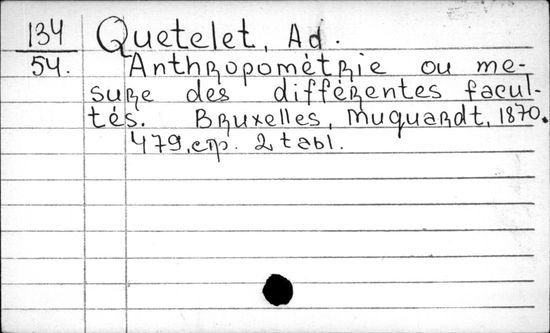 134 Quetelet, Ad.
54. Anthropométrie ou me-
sure des différentes facul-
tés. Bruxelles, Muquardt, 1870.
479 стр. 2 tabl.